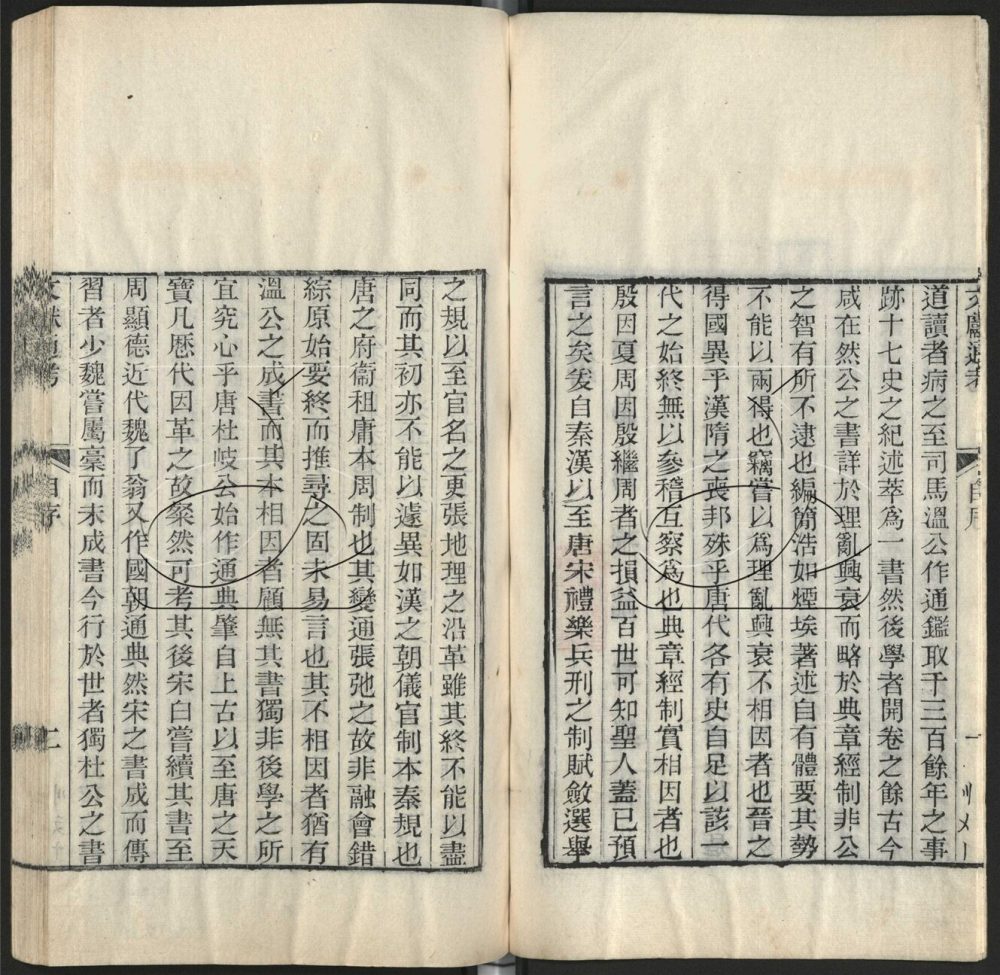 文獻通考 自序 一
道讀者病之至司馬溫公作通鑑取千三百餘年之事
跡十七史之紀述萃爲一書然後學者開卷之餘古今
咸在然公之書詳於理亂興衰而略於典章經制非公
之智有所不逮也編簡浩如煙埃著述自有體要其勢
不能以兩得也竊嘗以爲理亂興衰不相因者也晉之
得國異乎漢隋之喪邦殊乎唐代各有史自足以該一
代之始終無以參稽互察爲也典章經制實相因者也
殷因夏周因殷繼周者之損益百世可知聖人蓋已預
言之矣爰自秦漢以至唐宋禮樂兵刑之制賦斂選舉
之規以至官名之更張地理之沿革雖其終不能以盡
同而其初亦不能以遽異如漢之朝儀官制本秦規也
唐之府衞租庸本周制也其變通張弛之故非融會錯
綜原始要終而推尋之固未易言也其不相因者猶有
溫公之成書而其本相因者顧無其書獨非後學之所
宜究心乎唐杜岐公始作通典肇自上古以至唐之天
寶凡歷代因革之故粲然可考其後宋白嘗續其書至
周顯德近代魏了翁又作國朝通典然宋之書成而傳
習者少魏嘗屬稾而未成書今行於世者獨杜公之書
文獻通考 自序 二